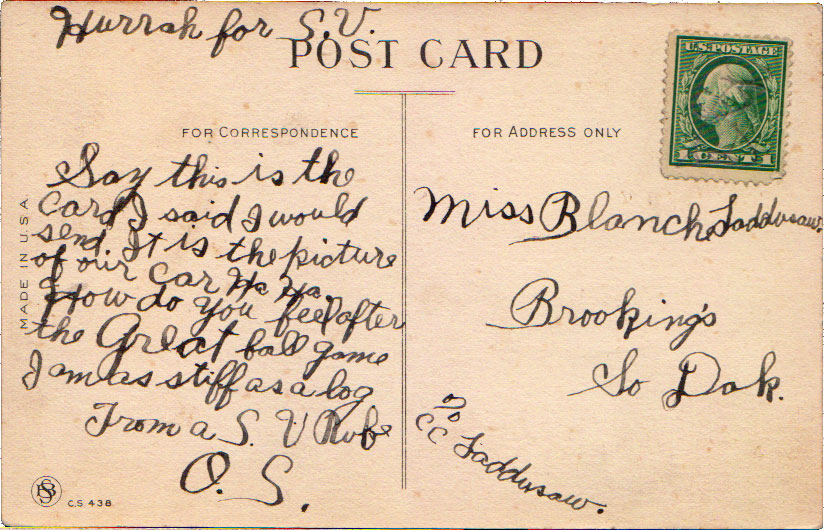 Hurrah for S.V.
POST CARD
U.S. POSTAGE
1 CENT 1
FOR CORRESPONDENCE
FOR ADDRESS ONLY
Say this is the
Card I said I would
send. It is the picture
of our Car Ha Ha.
How do you feel after
the Great ball game
I am as stiff as a log
From a S. V Rube
O. S.
MADE IN U.S.A.
BSS
C.S 438
Miss Blanch Laddusaw.
Brooking's
So Dak.
c/o
CC Laddusaw.